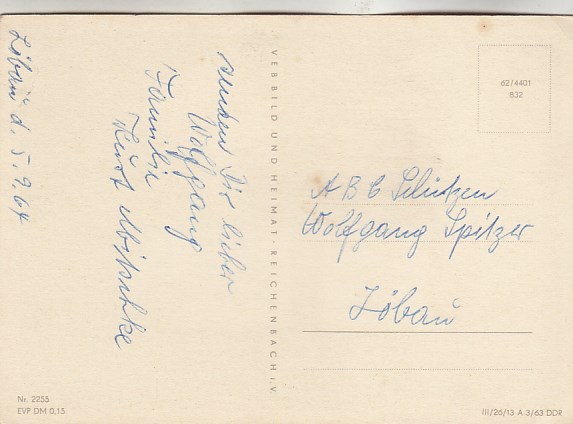 Löbau d. 5.9.64
senden Dir lieber
Wolfgang
Familie
Kurt Mitschke
VEB BILD UND HEIMAT · REICHENBACH I.V.
62/4401
832
ABC Schützen
Wolfgang Spitzer
Löbau
Nr. 2255
EVP DM 0,15
III/26/13 A 3/63 DDR